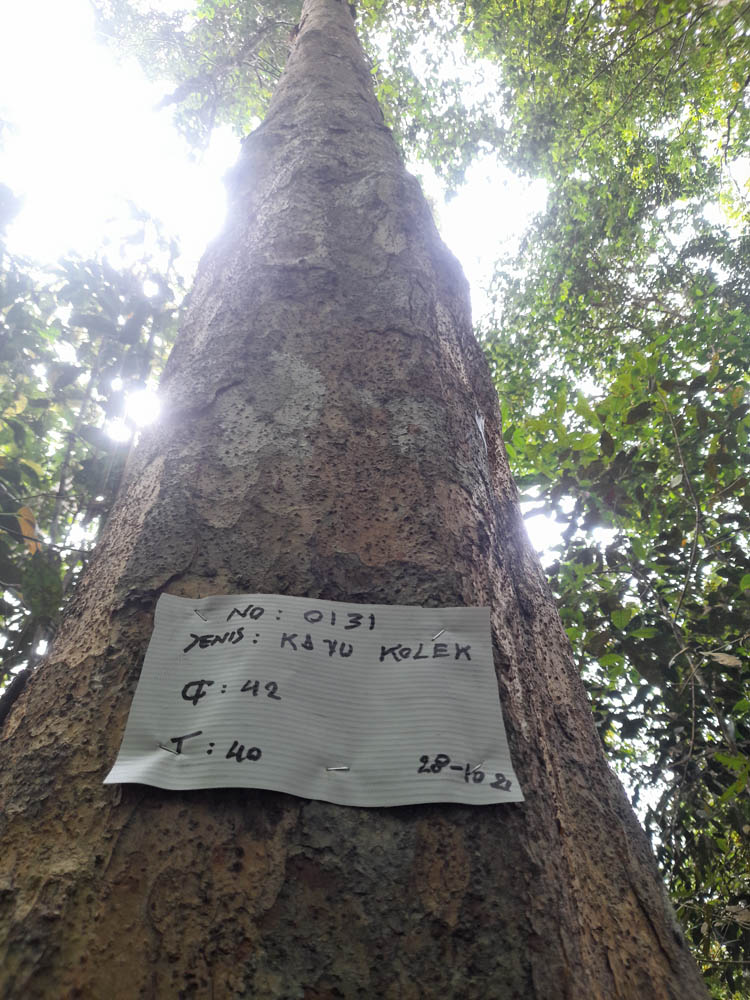 NO: 0131
JENIS: KAYU KOLEK
₵: 42
T: 40
28-10 21